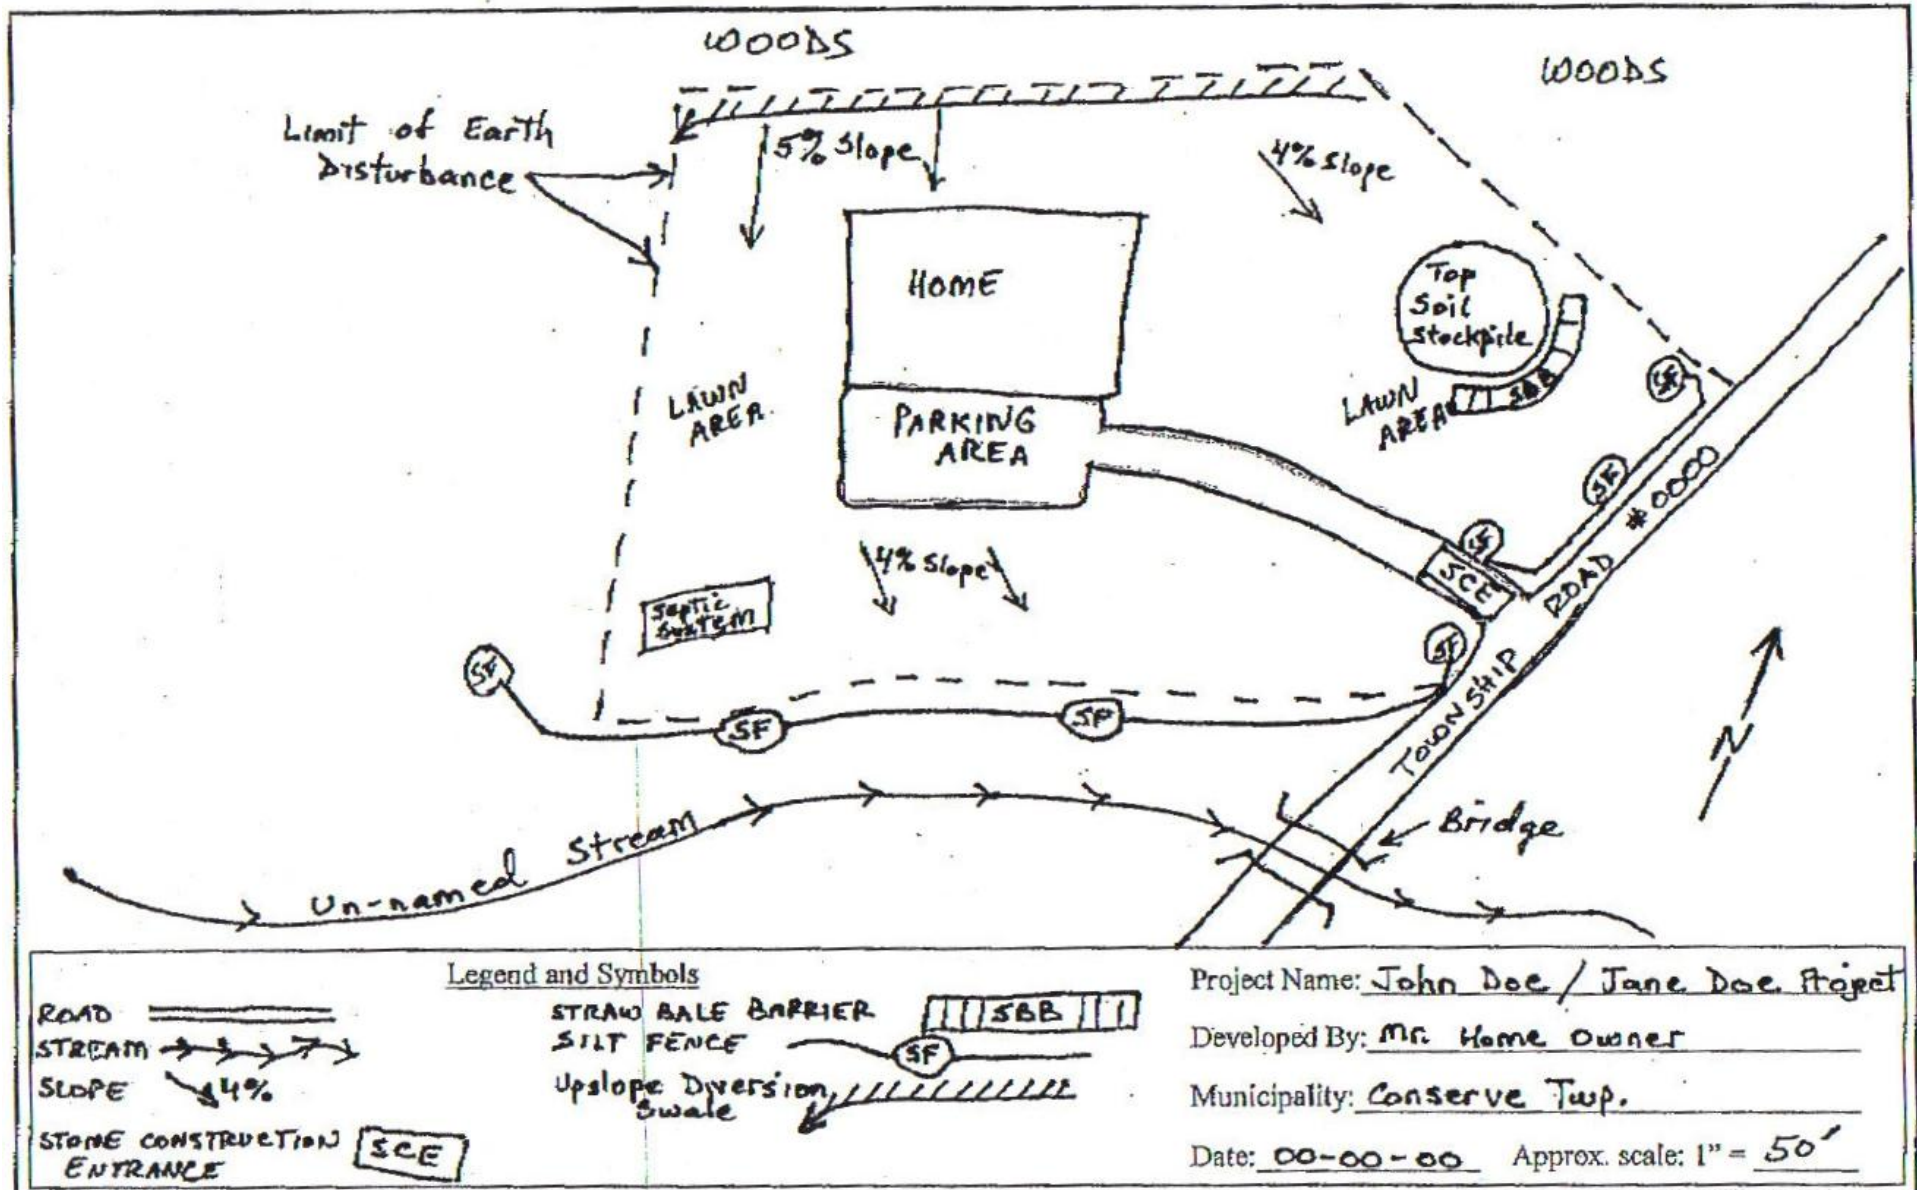 WOODS
WOODS
Limit of Earth
Disturbance
5% Slope
4% Slope
HOME
Top
Soil
Stockpile
SBB
SF
LAWN
AREA
LAWN
AREA
PARKING
AREA
SF
SF
SCE
4% Slope
Septic
System
SF
SF
SF
SF
TOWNSHIP ROAD #0000
N
Bridge
Un-named Stream
Legend and Symbols
ROAD
STREAM
SLOPE 4%
STONE CONSTRUCTION
ENTRANCE
SCE
STRAW BALE BARRIER SBB
SILT FENCE SF
Upslope Diversion
Swale
Project Name: John Doe / Jane Doe Project
Developed By: Mr. Home Owner
Municipality: Conserve Twp.
Date: 00-00-00 Approx. scale: 1" = 50'